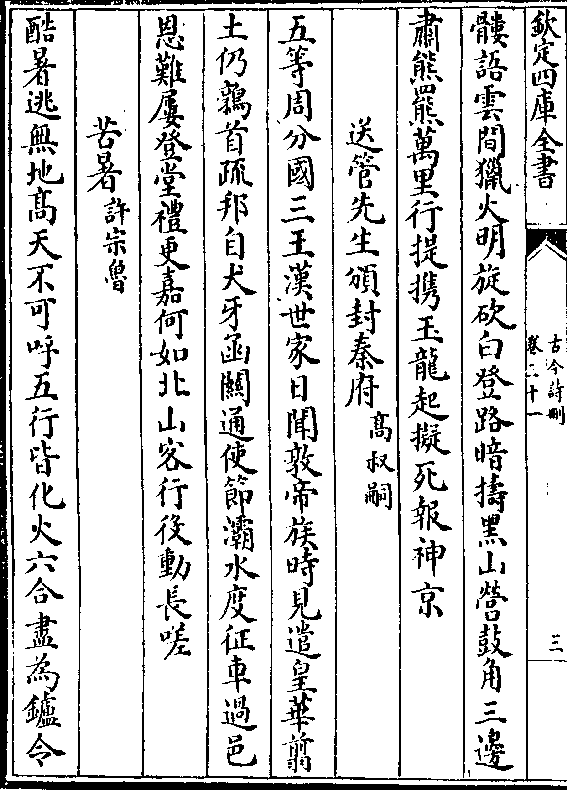 欽定四庫全書
古今詩刪
卷二十一
三
髏語雲間獵火明旋砍白登路暗擣黑山營鼓角三邊
肅熊羆萬里行提攜玉龍起擬死報神京
送管先生頒封秦府 高叔嗣
五等周分國三王漢世家日聞敦帝族時見遣皇華翦
土仍鶉首疏邦自犬牙函關通使節灞水度征車過邑
恩難屢登堂禮更嘉何如北山客行役動長嗟
苦暑 許宗魯
酷暑逃無地高天不可呼五行皆化火六合盡為鑪令